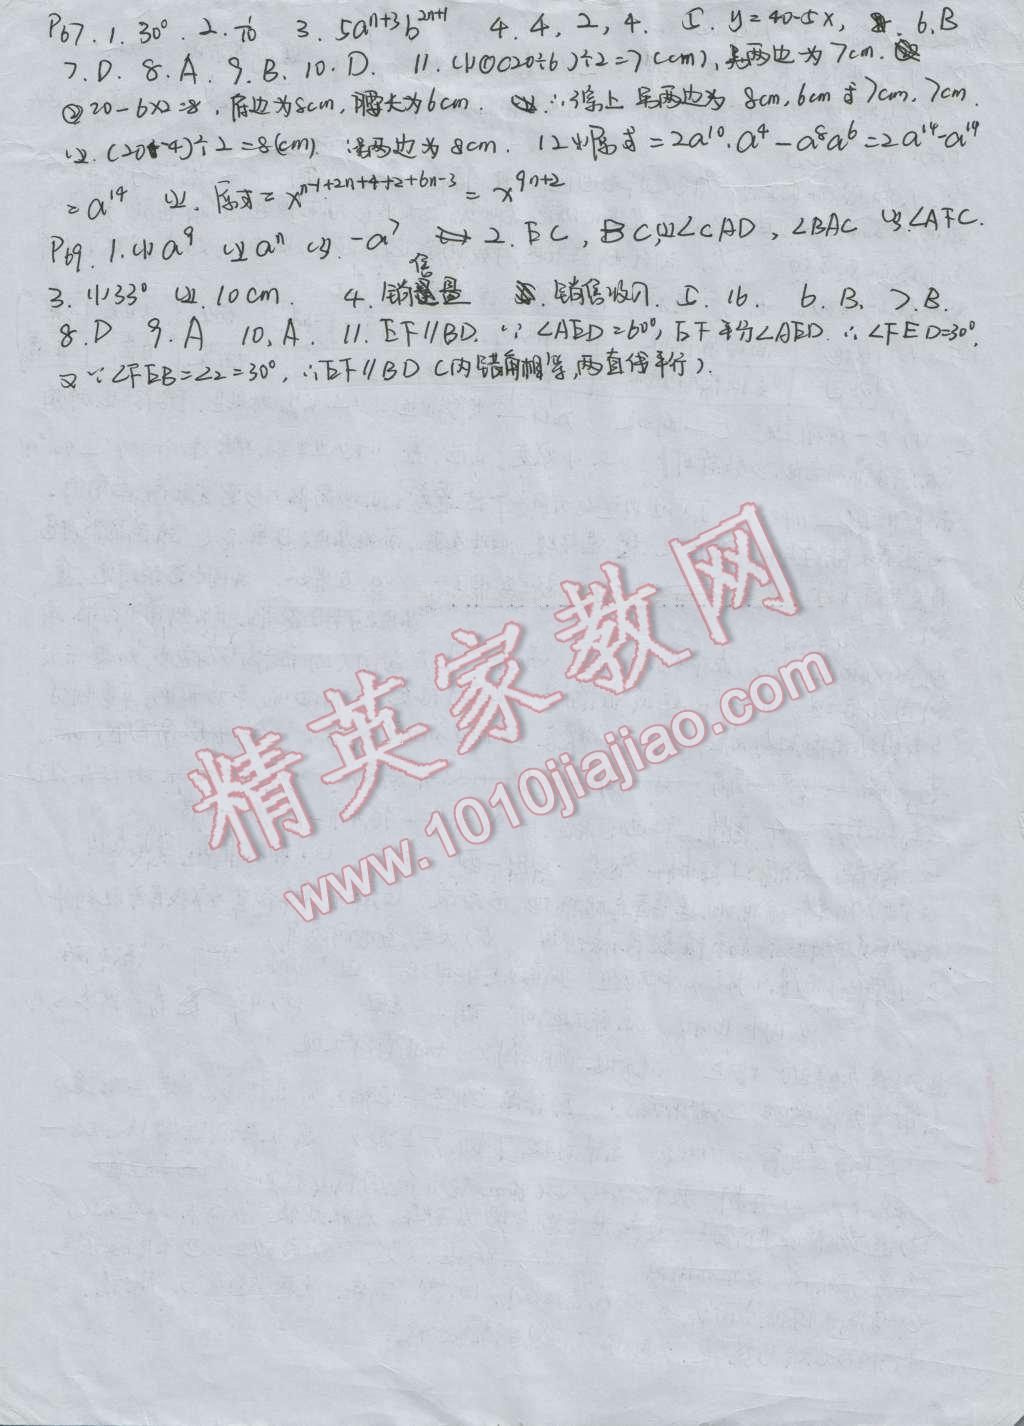 P67. 1. 30° 2. 1/10 3. 5aⁿ⁺³b²ⁿ⁺¹ 4. 4, 2, 4. 5. y=40-5x, 6. B
7. D. 8. A. 9. B. 10. D. 11. (1)①(20-6)÷2=7(cm), 另两边为7cm.
②20-6×2=8, 底边为8cm, 腰长为6cm. ∴综上 另两边为 8cm, 6cm或7cm, 7cm.
(2). (20-4)÷2=8(cm). 另两边为8cm. 12(1)原式=2a¹⁰·a⁴-a⁸a⁶=2a¹⁴-a¹⁴
=a¹⁴ (2). 原式=xⁿ⁻¹⁺²ⁿ⁺⁴⁺²⁺⁶ⁿ⁻³=x⁹ⁿ⁺²
P69. 1. (1)a⁹ (2)aⁿ (3). -a⁷ 2. EC, BC (2)∠CAD, ∠BAC (3). ∠AFC.
3. (1)33° (2). 10cm. 4. 销售量 销售收入. 5. 16. 6. B. 7. B.
8. D 9. A 10. A. 11. EF∥BD. ∵∠AED=60°, EF平分∠AED. ∴∠FED=30°.
又∵∠FEB=∠2=30°, ∴EF∥BD (内错角相等, 两直线平行).
精英家教网
www.1010jiajiao.com